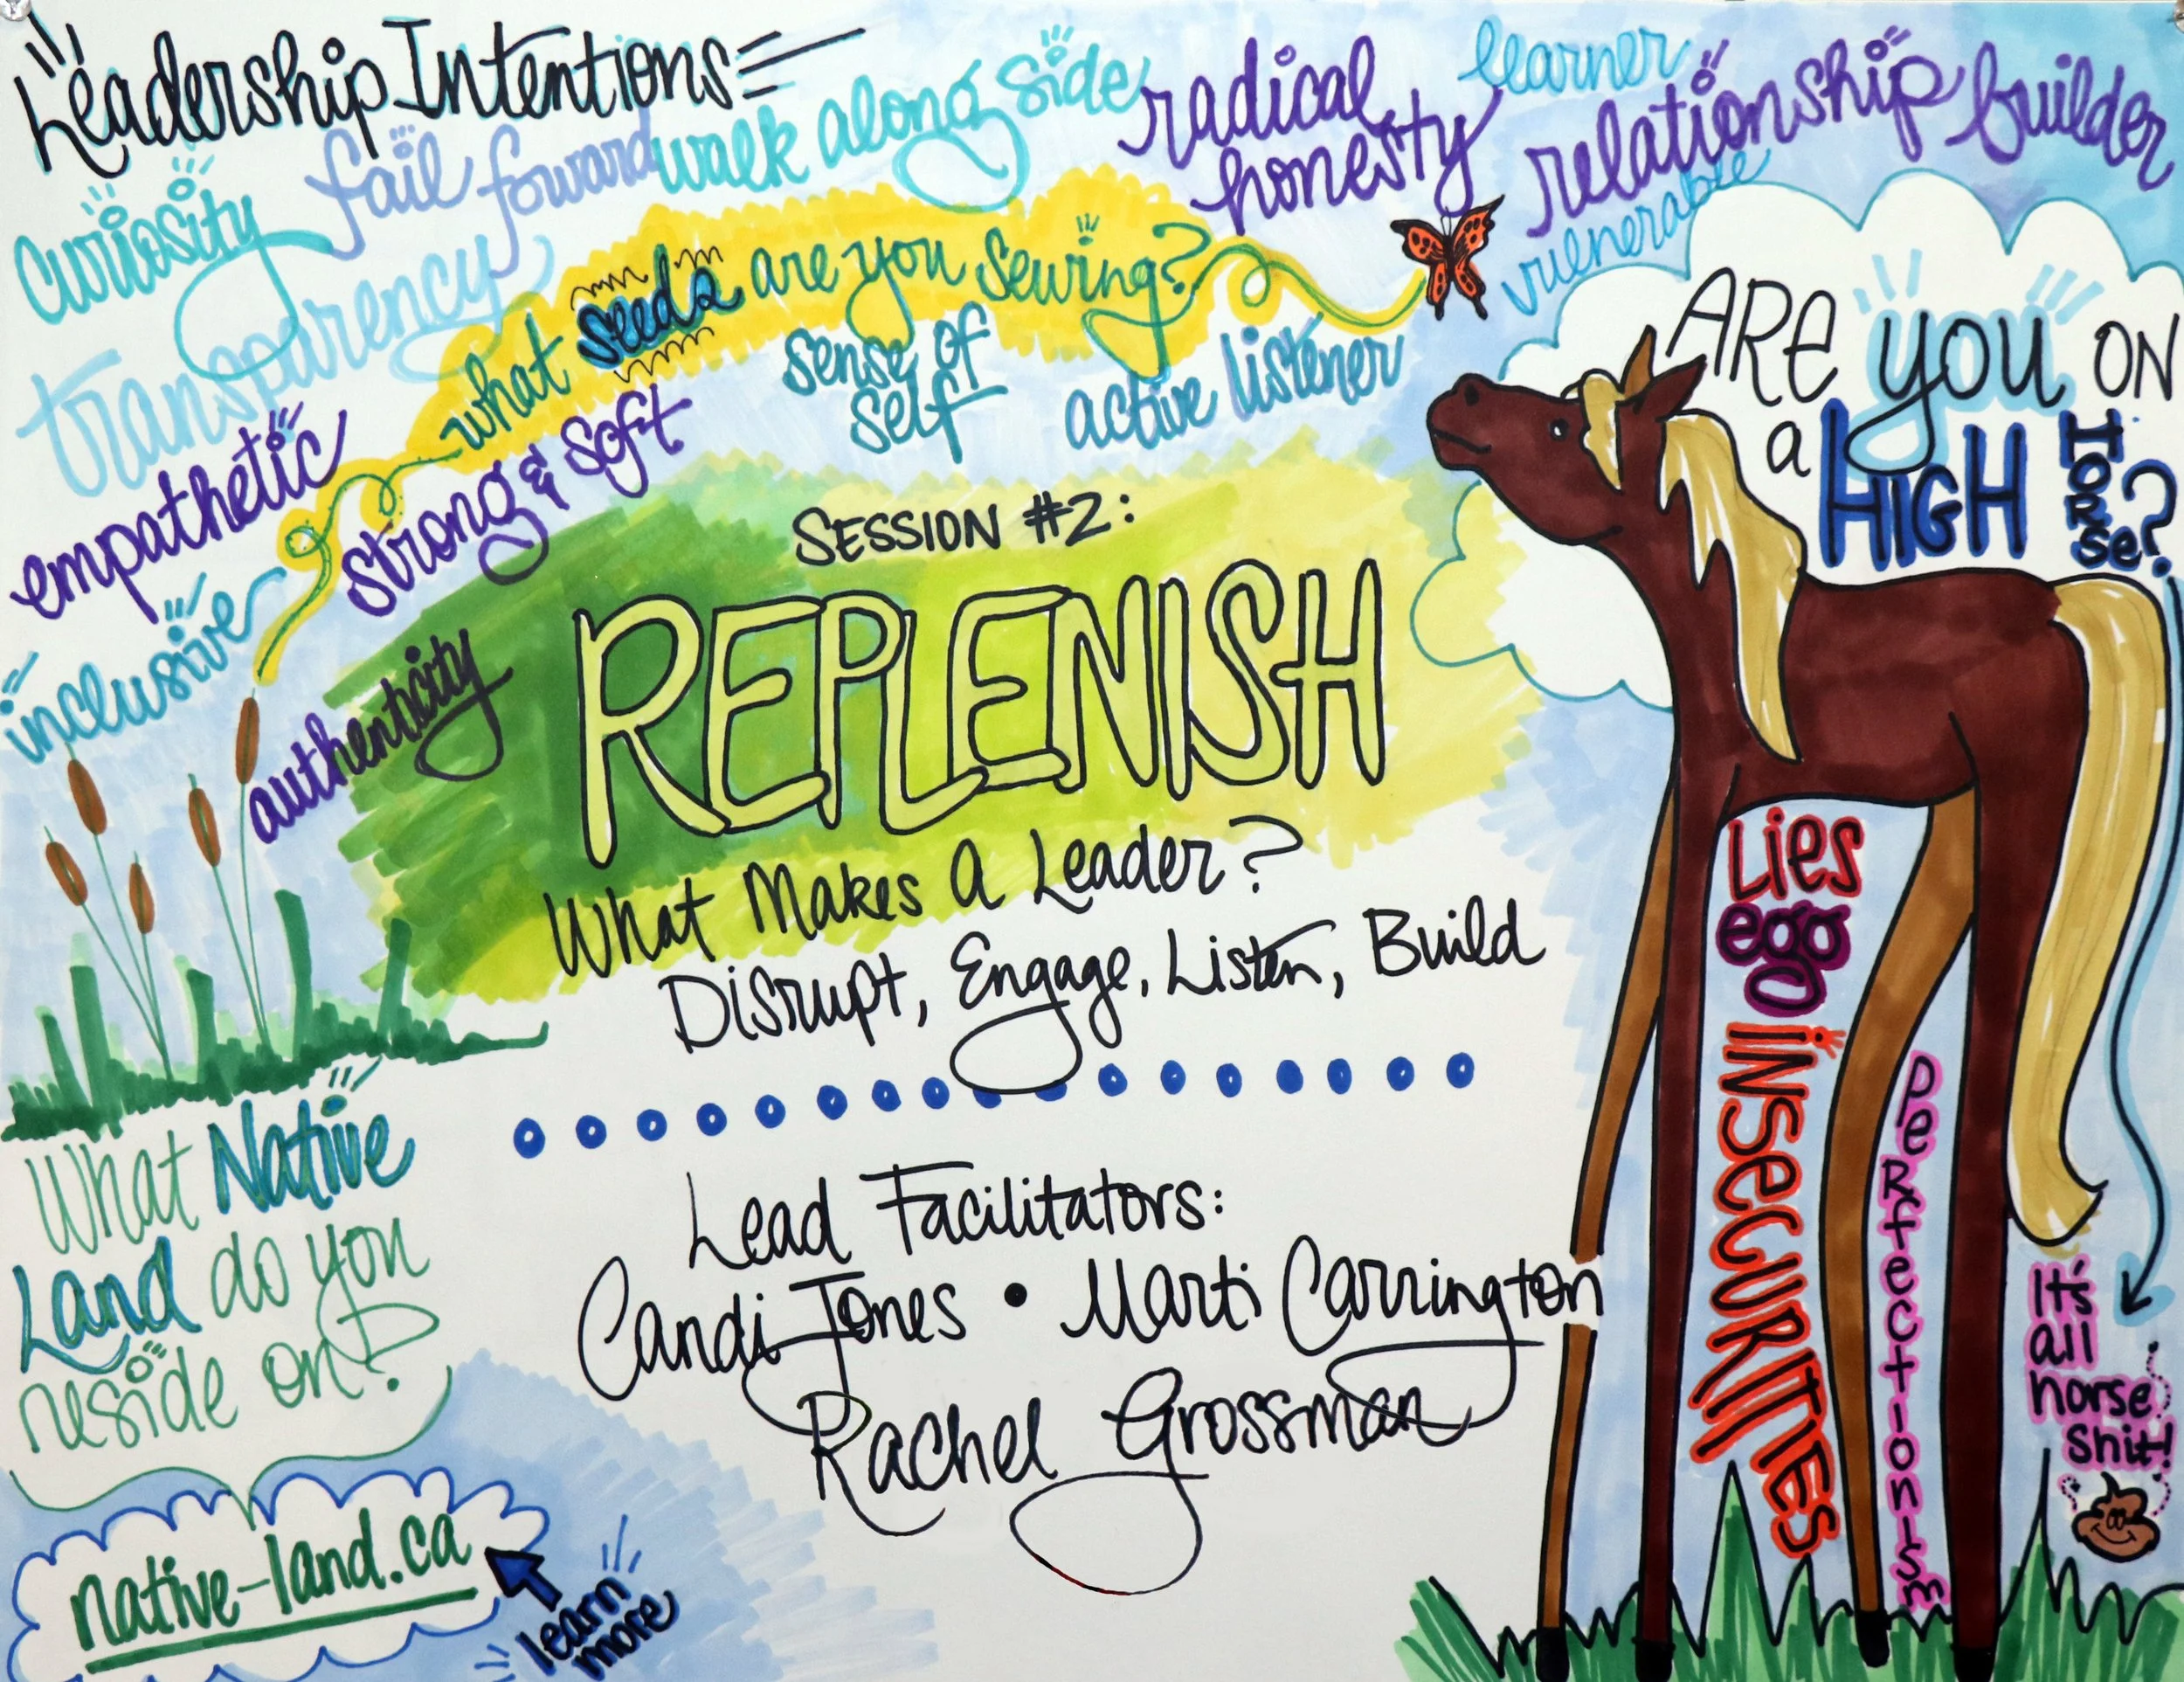 Leadership Intentions
curiosity
fail forward
walk along side
radical
honesty
learner
relationship builder
vulnerable
transparency
what seeds are you sewing?
sense of
self
active listener
empathetic
strong & soft
inclusive
authenticity
SESSION #2:
REPLENISH
What Makes A Leader?
Disrupt, Engage, Listen, Build
Lead Facilitators:
Candi Jones • Marti Carrington
Rachel Grossman
What Native
Land do you
reside on?
native-land.ca
learn
more
ARE you ON
a HIGH HORSe?
Lies
ego
INSeCURITIES
PeRfectIonIsm
It's
all
horse
shit!